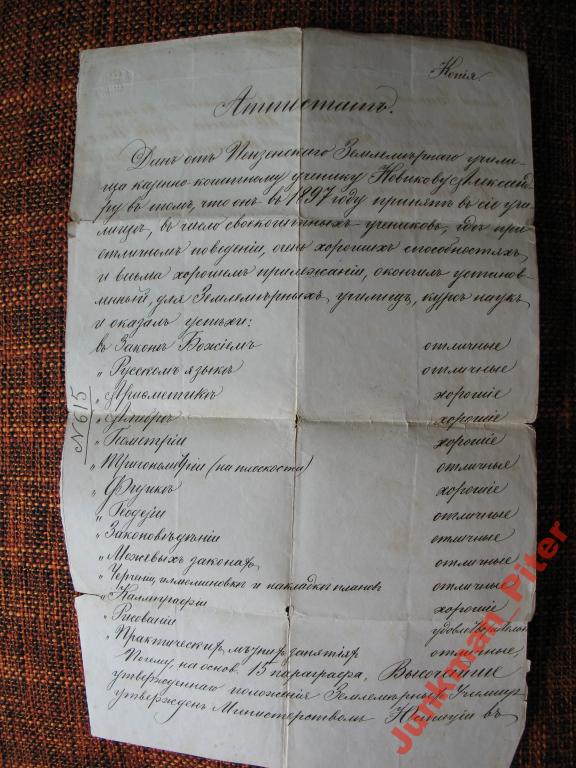 Копія.
Аттестатъ.
Данъ отъ Пензенскаго Землемѣрнаго учили-
ща казенно-коштному ученику Новикову Алексан-
дру въ томъ, что онъ въ 1897 году принятъ въ сіе учи-
лище, въ число своекоштныхъ учениковъ, гдѣ при
отличномъ поведеніи, очень хорошихъ способностяхъ
и весьма хорошемъ прилежаніи, окончилъ установ-
ленный, для Землемѣрныхъ училищъ, курсъ наукъ
и оказалъ успѣхи:
въ Законѣ Божіемъ отличные
" Русскомъ языкѣ отличные
" Ариѳметикѣ хорошіе
" Алгебрѣ хорошіе
" Геометріи хорошіе
" Тригонометріи (на плоскости) отличныя
" Физикѣ хорошіе
" Геодезіи отличные
" Законовѣдѣніи отличные
" Межевыхъ законахъ отличные
" Черченіи, иллюминовкѣ и накладкѣ плановъ отличные
" Каллиграфіи хорошіе
" Рисованіи удовлетворительн
" Практическихъ занятіяхъ отличные,
Почему, на основ. 15 параграфа, Высочайше
утвержденнаго положенія Землемѣрныхъ Училищъ
утвержденъ Министерствомъ Юстиціи въ
N 615
Junkman Piter